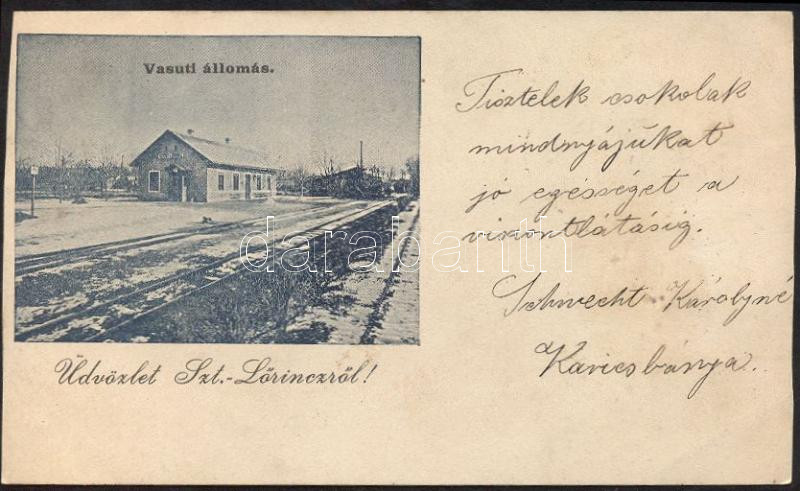 Vasuti állomás.
Tisztelek csokolak
mindnyájukat
jó egésséget a
viszontlátásig.
Schwecht Károlyné
Kavicsbánya.
Üdvözlet Szt.-Lőrinczről!
darabanth